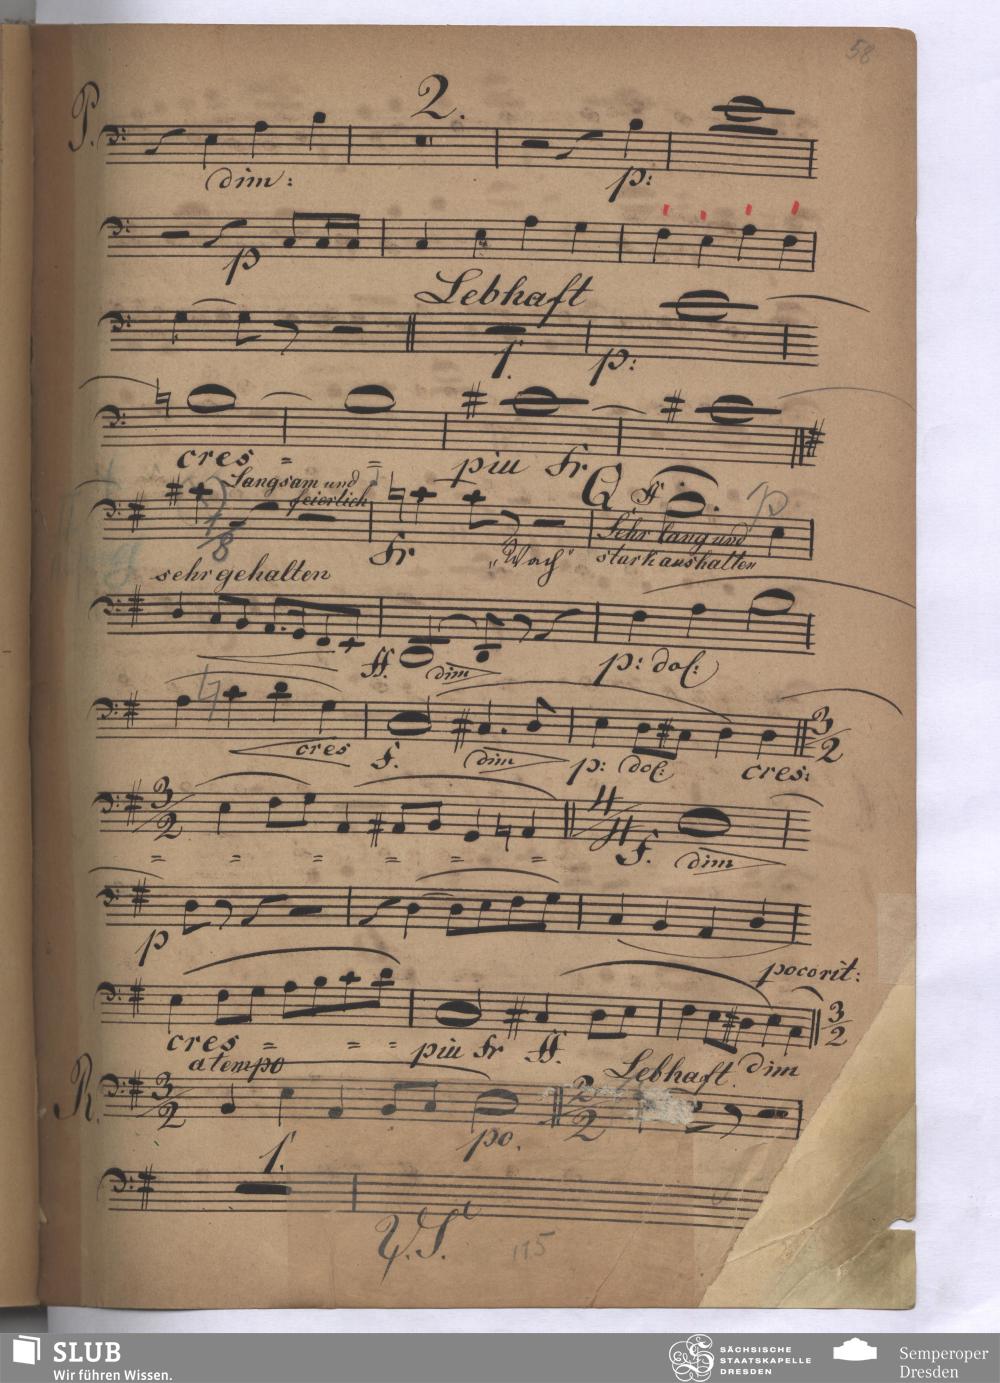 58
P. 2.
dim: p:
p
Lebhaft
1. p:
cres = = piu Fr
Langsam und feierlich
Q ff
Fr "Wach" Sehr lang und stark aushalten
sehr gehalten
ff. dim p: dol:
cres f. dim p: dol: cres:
3/2 4/4
= = = = = = f. dim
p
poco rit:
3/2
cres = = = piu Fr ff. dim
a tempo Lebhaft.
R. 3/2 3/2
po.
1.
V.S.
115
SLUB
Wir führen Wissen.
SÄCHSISCHE
STAATSKAPELLE
DRESDEN
Semperoper
Dresden